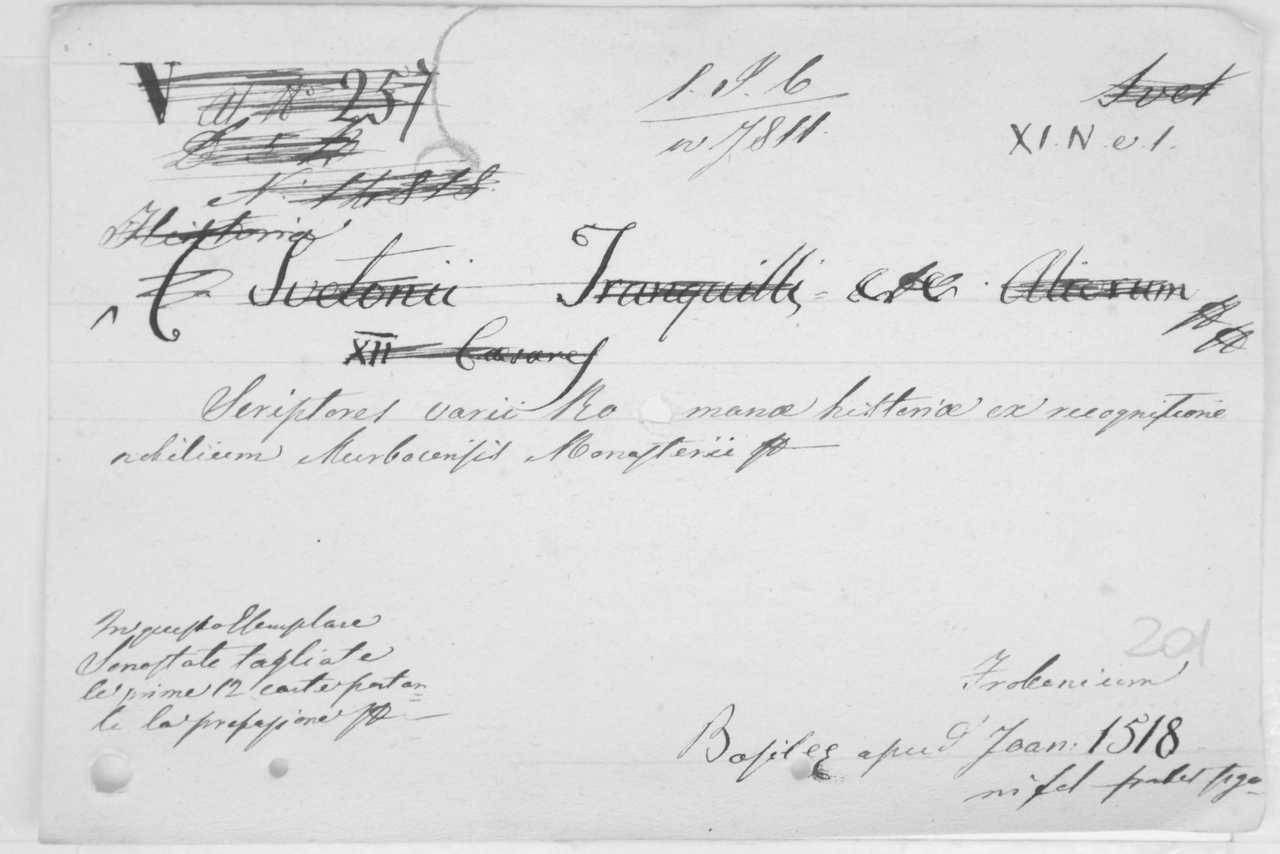 V 257
1. I. 6
n 7811.
Svet
XI. N. e. 1.
N. 14818.
Historia
C Svetonii Tranquilli, etc. Aliorum
XII Cæsares
Scriptores varii Romanæ historiæ ex recognitione
nobilium Murbacensis Monasterii
In questo Esemplare
Sono state tagliate
le prime 12 carte portan=
te la prefazione
201
Frobenium
Basileę apud Joan: 1518
in fol